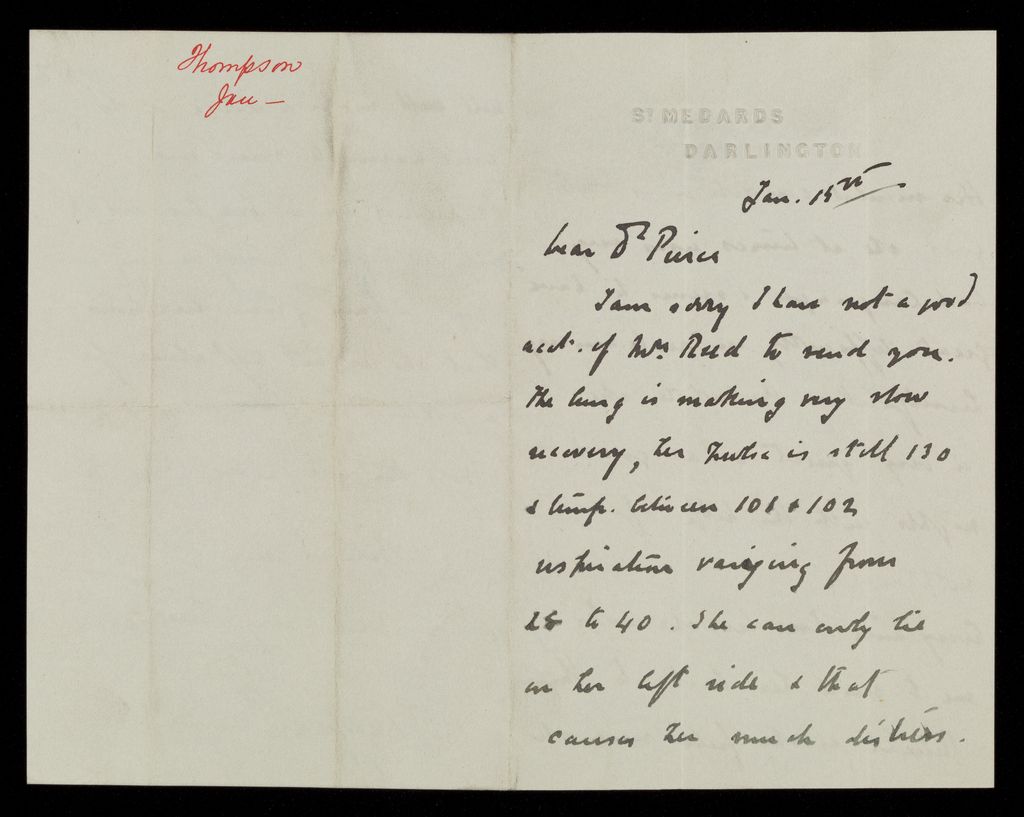 Thompson
Jan -
St MEDARDS
DARLINGTON
Jan. 15th
Dear Dr Pierce
I am sorry I have not a good
acct. of Mrs Reed to send you.
The lung is making very slow
recovery, her pulse is still 130
& temp. between 101 & 102
respiration varying from
28 to 40. She can only lie
on her left side & that
causes her much distress.